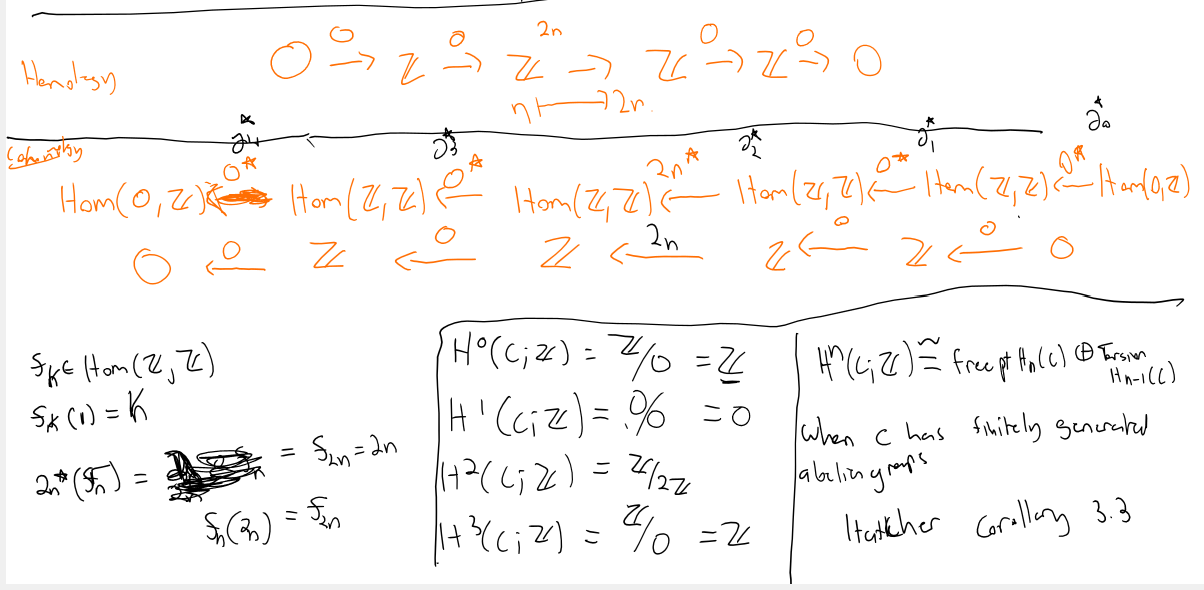 Homology
0 →^0 ℤ →^0 ℤ →^{2n} ℤ →^0 ℤ →^0 0
n ↦ 2n
∂₄* ∂₃* ∂₂* ∂₁* ∂₀*
Cohomology
Hom(0,ℤ) ←^{0*} Hom(ℤ,ℤ) ←^{0*} Hom(ℤ,ℤ) ←^{2n*} Hom(ℤ,ℤ) ←^{0*} Hom(ℤ,ℤ) ←^{0*} Hom(0,ℤ)
0 ←^0 ℤ ←^0 ℤ ←^{2n} ℤ ←^0 ℤ ←^0 0
f_K ∈ Hom(ℤ,ℤ)
f_K(1) = K
2n*(f_n) = = f_{2n} = 2n
f_n(2n) = f_{2n}
H⁰(C;ℤ) = ℤ/0 = ℤ
H¹(C;ℤ) = 0/0 = 0
H²(C;ℤ) = ℤ/2ℤ
H³(C;ℤ) = ℤ/0 = ℤ
Hⁿ(C;ℤ) ≅ free pt H_n(C) ⊕ Torsion H_{n-1}(C)
when C has finitely generated
abelian groups
Hatcher Corollary 3.3